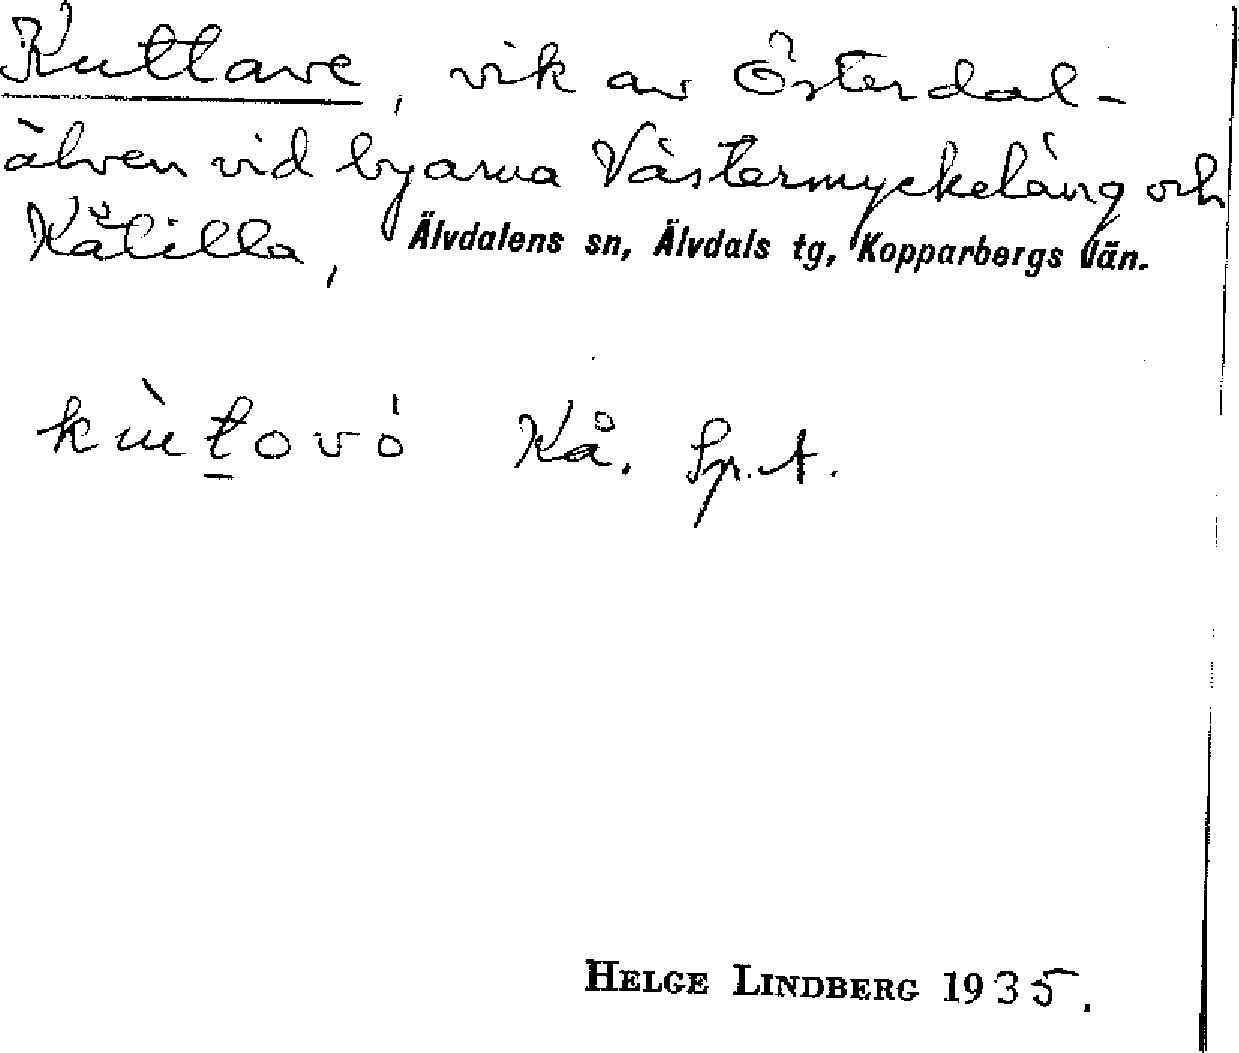 Kuttave, vik av Österdal-
älven vid byarna Västermyckeläng och
Kåtilla, Älvdalens sn, Älvdals tg, Kopparbergs län.
Kå. Sp. A.
HELGE LINDBERG 1935.